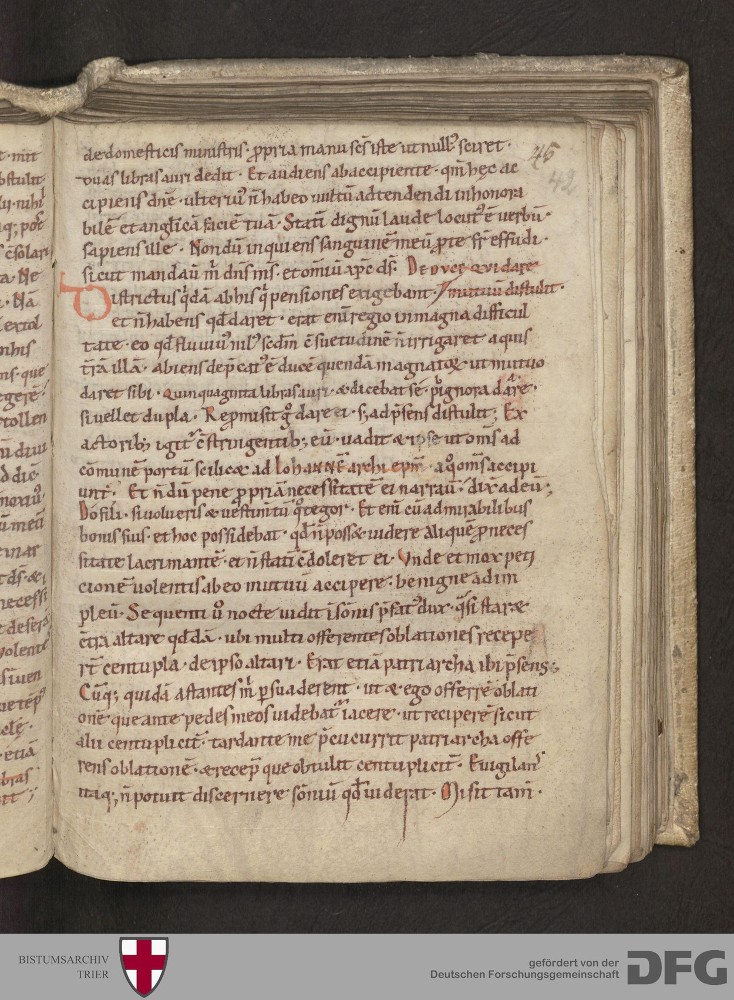 de domesticis ministris · ꝓpria manu sc̄s iste ut null᷒ sciret ·
duas libras auri dedit · Et audiens ab accipiente · qm̄ hęc ac
cipiens dn̄e · ulteri᷒ n̄ habeo uultū adtendendi in honora
bilē et angl̓icā faciē tuā · Statī dignū laude locut᷒ ē uerbū ·
sapiens ille · Nondū inquiens sanguinē meū ꝓ te fr̄ effudi ·
sicut mandauī m̄ dn̄s m̄s · et omiū xp̄c d̄s · De duce qui dare
Districtus q̇dā ab his q̇ pensiones exigebant · mutuū distulit ·
et n̄ habens qd̄ daret · erat enī regio in magna difficul
tate · eo qd̄ fluuiu᷒ nil᷒ scdm̄ c̄suetudinē n̄ irrigaret aquis
t̄rā illā · abiens dep̄cat᷒ ē ducē quendā magnatoꝝ · ut mutuo
daret sibi · quinquaginta libras auri · & dicebat sē pignora dare ·
si uellet dupla · Repmisit g̊ dare ei · s; ad p̄sens distulit ; Ex
actorib; igit̄ c̄stringentib; eū · uadit & ipse ut om̄s ad
cōmunē portū scilic& ad Iohannē archiepm̄ · a q̊ om̄s accipi
unt̄ · Et n̄dū pene ꝓpriā necessitatē ei narrauit · dix̄ ad eū ;
Do fili · si uolueris & uestimtū q̊ tegor · Et enī cū admirabilibus
bonis suis · et hoc possidebat · qd̄ n̄ poss& uidere aliquē p̄ neces
sitate lacrimantē · et n̄ statī c̄doleret ei · Unde et mox peti
cionē uolentis ab eo mutuū accipere · benigne adim
pleuit · Sequenti ū nocte uidit ī sōnis p̄fat᷒ dux · q̇si stare
c̄tra altare qd̄dā · ubi multi offerentes oblationes recepe
rt̄ centupla · de ipso altari · Erat etiā patriarcha ibi p̄sens ;
Cūq; quidā astantes m̄ psuaderent · ut & ego offerrē oblati
onē que ante pedes meos uidebat̄ iacere · ut reciperē sicut
alii centuplicit̄ · tardante me p̄cucurrit patriarcha offe
rens oblationē · & recep̄ que obtulit centuplicit̄ · Euigilans
itaq; n̄ potuit discernere sōniū qd̄ uiderat · Misit tam̄ ·
45
42
BISTUMSARCHIV
TRIER
gefördert von der
Deutschen Forschungsgemeinschaft
DFG